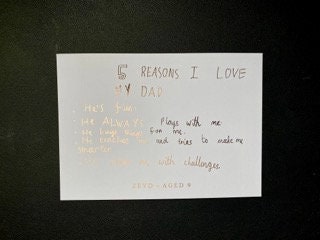 5 REASONS I LOVE
MY DAD
. He's fun!
. He ALWAYS plays with me.
. He buys for me.
. He teaches me and tries to make me
smarter
me with challenges
ZEYD - AGED 9